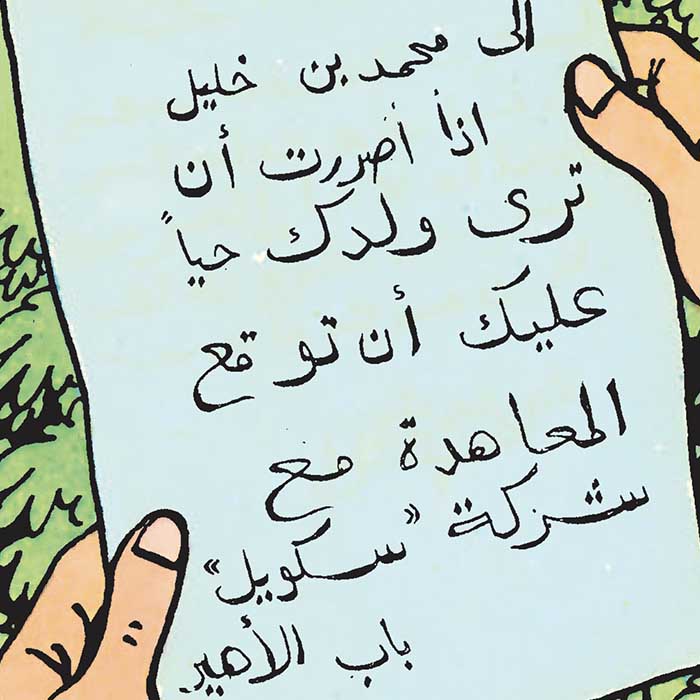 الى محمد بن خليل
اذاً أضررت أن
ترى ولدك حياً
عليك أن توقع
المعاهدة مع
شركة "سكويل"
باب الأهير